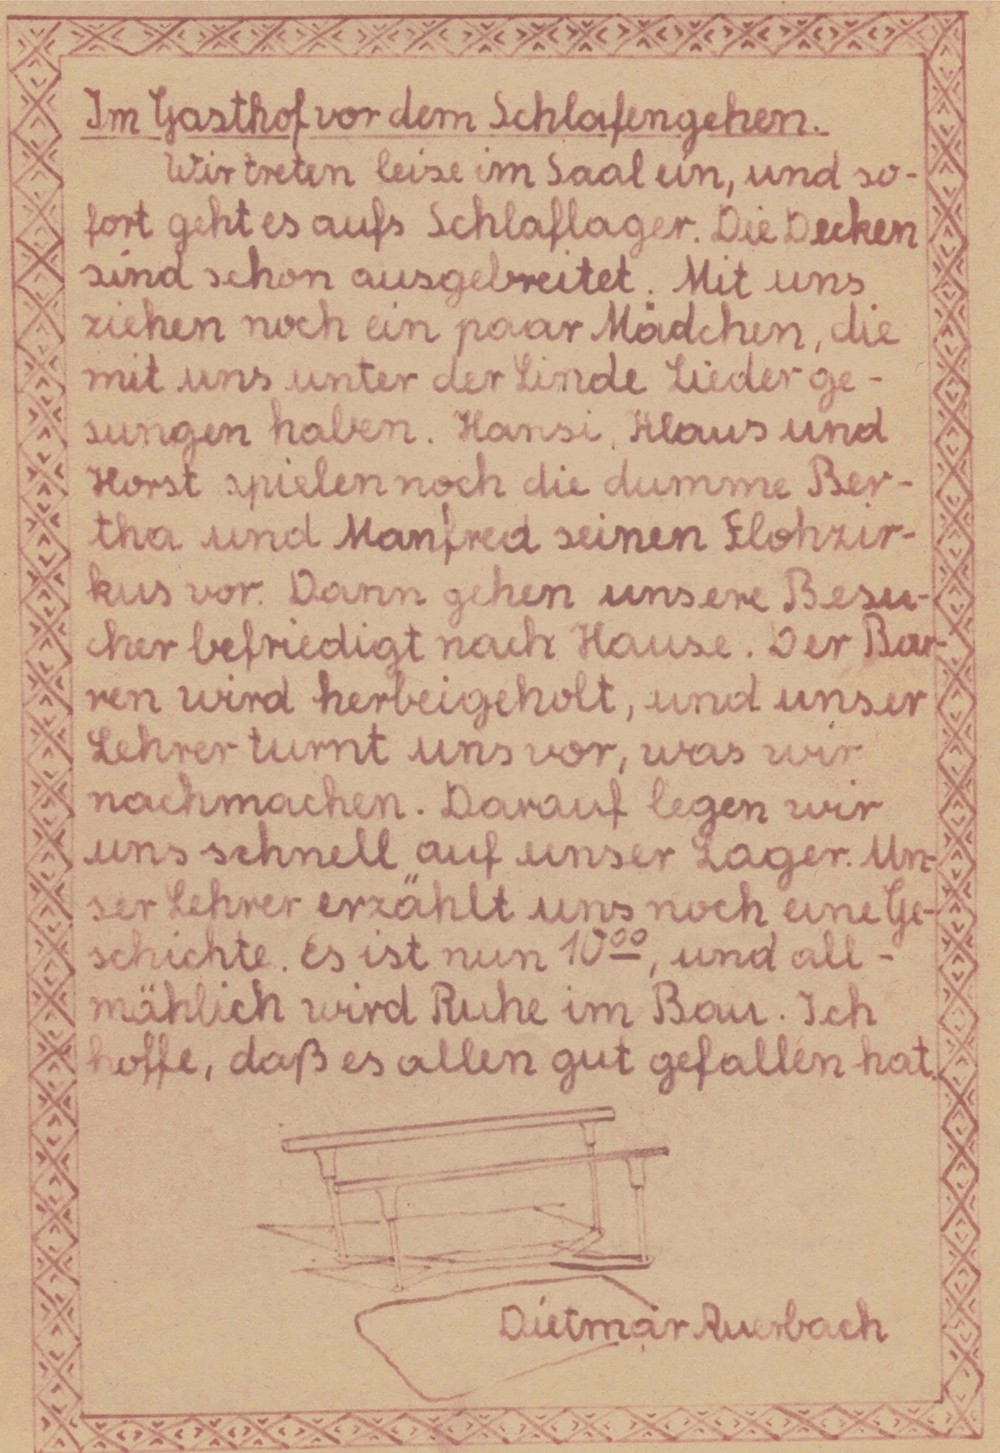 Im Gasthof vor dem Schlafengehen.
Wir treten leise im Saal ein, und so-
fort geht es aufs Schlaflager. Die Decken
sind schon ausgebreitet. Mit uns
ziehen noch ein paar Mädchen, die
mit uns unter der Linde Lieder ge-
sungen haben. Hansi, Klaus und
Horst spielen noch die dumme Ber-
tha und Manfred seinen Flohzir-
kus vor. Dann gehen unsere Besu-
cher befriedigt nach Hause. Der Bar-
ren wird herbeigeholt, und unser
Lehrer turnt uns vor, was wir
nachmachen. Darauf legen wir
uns schnell auf unser Lager. Un-
ser Lehrer erzählt uns noch eine Ge-
schichte. Es ist nun 10⁰⁰, und all-
mählich wird Ruhe im Bau. Ich
hoffe, daß es allen gut gefallen hat.
Dietmar Auerbach